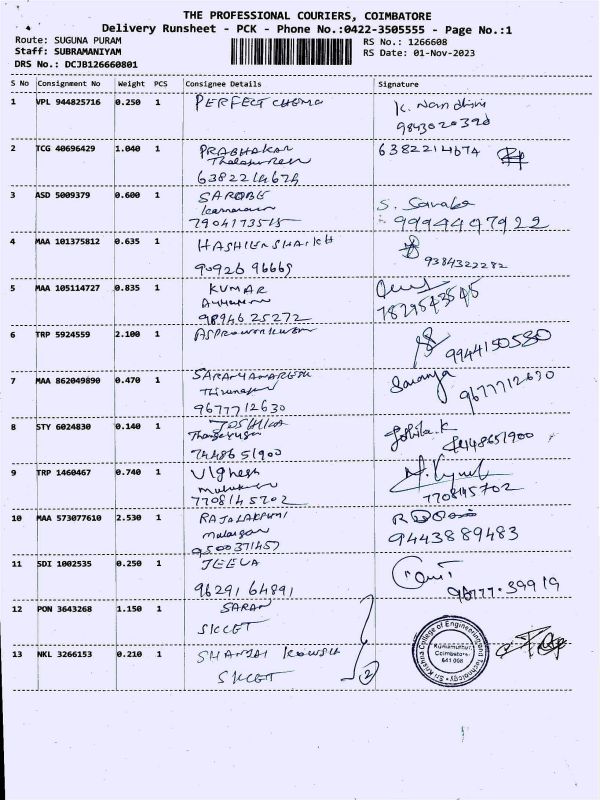 THE PROFESSIONAL COURIERS, COIMBATORE
Delivery Runsheet - PCK - Phone No.:0422-3505555 - Page No.:1
Route: SUGUNA PURAM
RS No.: 1266608
Staff: SUBRAMANIYAM
RS Date: 01-Nov-2023
DRS No.: DCJB126660801
S No Consignment No Weight PCS Consignee Details Signature
1 VPL 944825716 0.250 1 PERFECT CHEMO K. Nandhini
9843020390
2 TCG 40696429 1.040 1 PRABHAKAR 6382214674
6382214674
3 ASD 5009379 0.600 1 SAROBE S. Saraba
7904173515 9994497922
4 MAA 101375812 0.635 1 HASHIER SHAIKH
90926 96669 9384322282
5 MAA 105114727 0.835 1 KUMAR
98946 25272 7829543545
6 TRP 5924559 2.100 1
9944150580
7 MAA 862049890 0.470 1 Saranya
9677712630 9677712630
8 STY 6024830 0.140 1 JOSHIKA
7448651900 7448651900
9 TRP 1460467 0.740 1 Vighesh
7708145702 7708145702
10 MAA 573077610 2.530 1 RAJALAKSHMI
9500371457 9443889483
11 SDI 1002535 0.250 1 JEEVA
96291 64891 96777 39919
12 PON 3643268 1.150 1 SARAN
SKCET
13 NKL 3266153 0.210 1
SKCET 2
Sri Krishna College of Engineering and Technology
Kuniamuthur,
Coimbatore
641 008